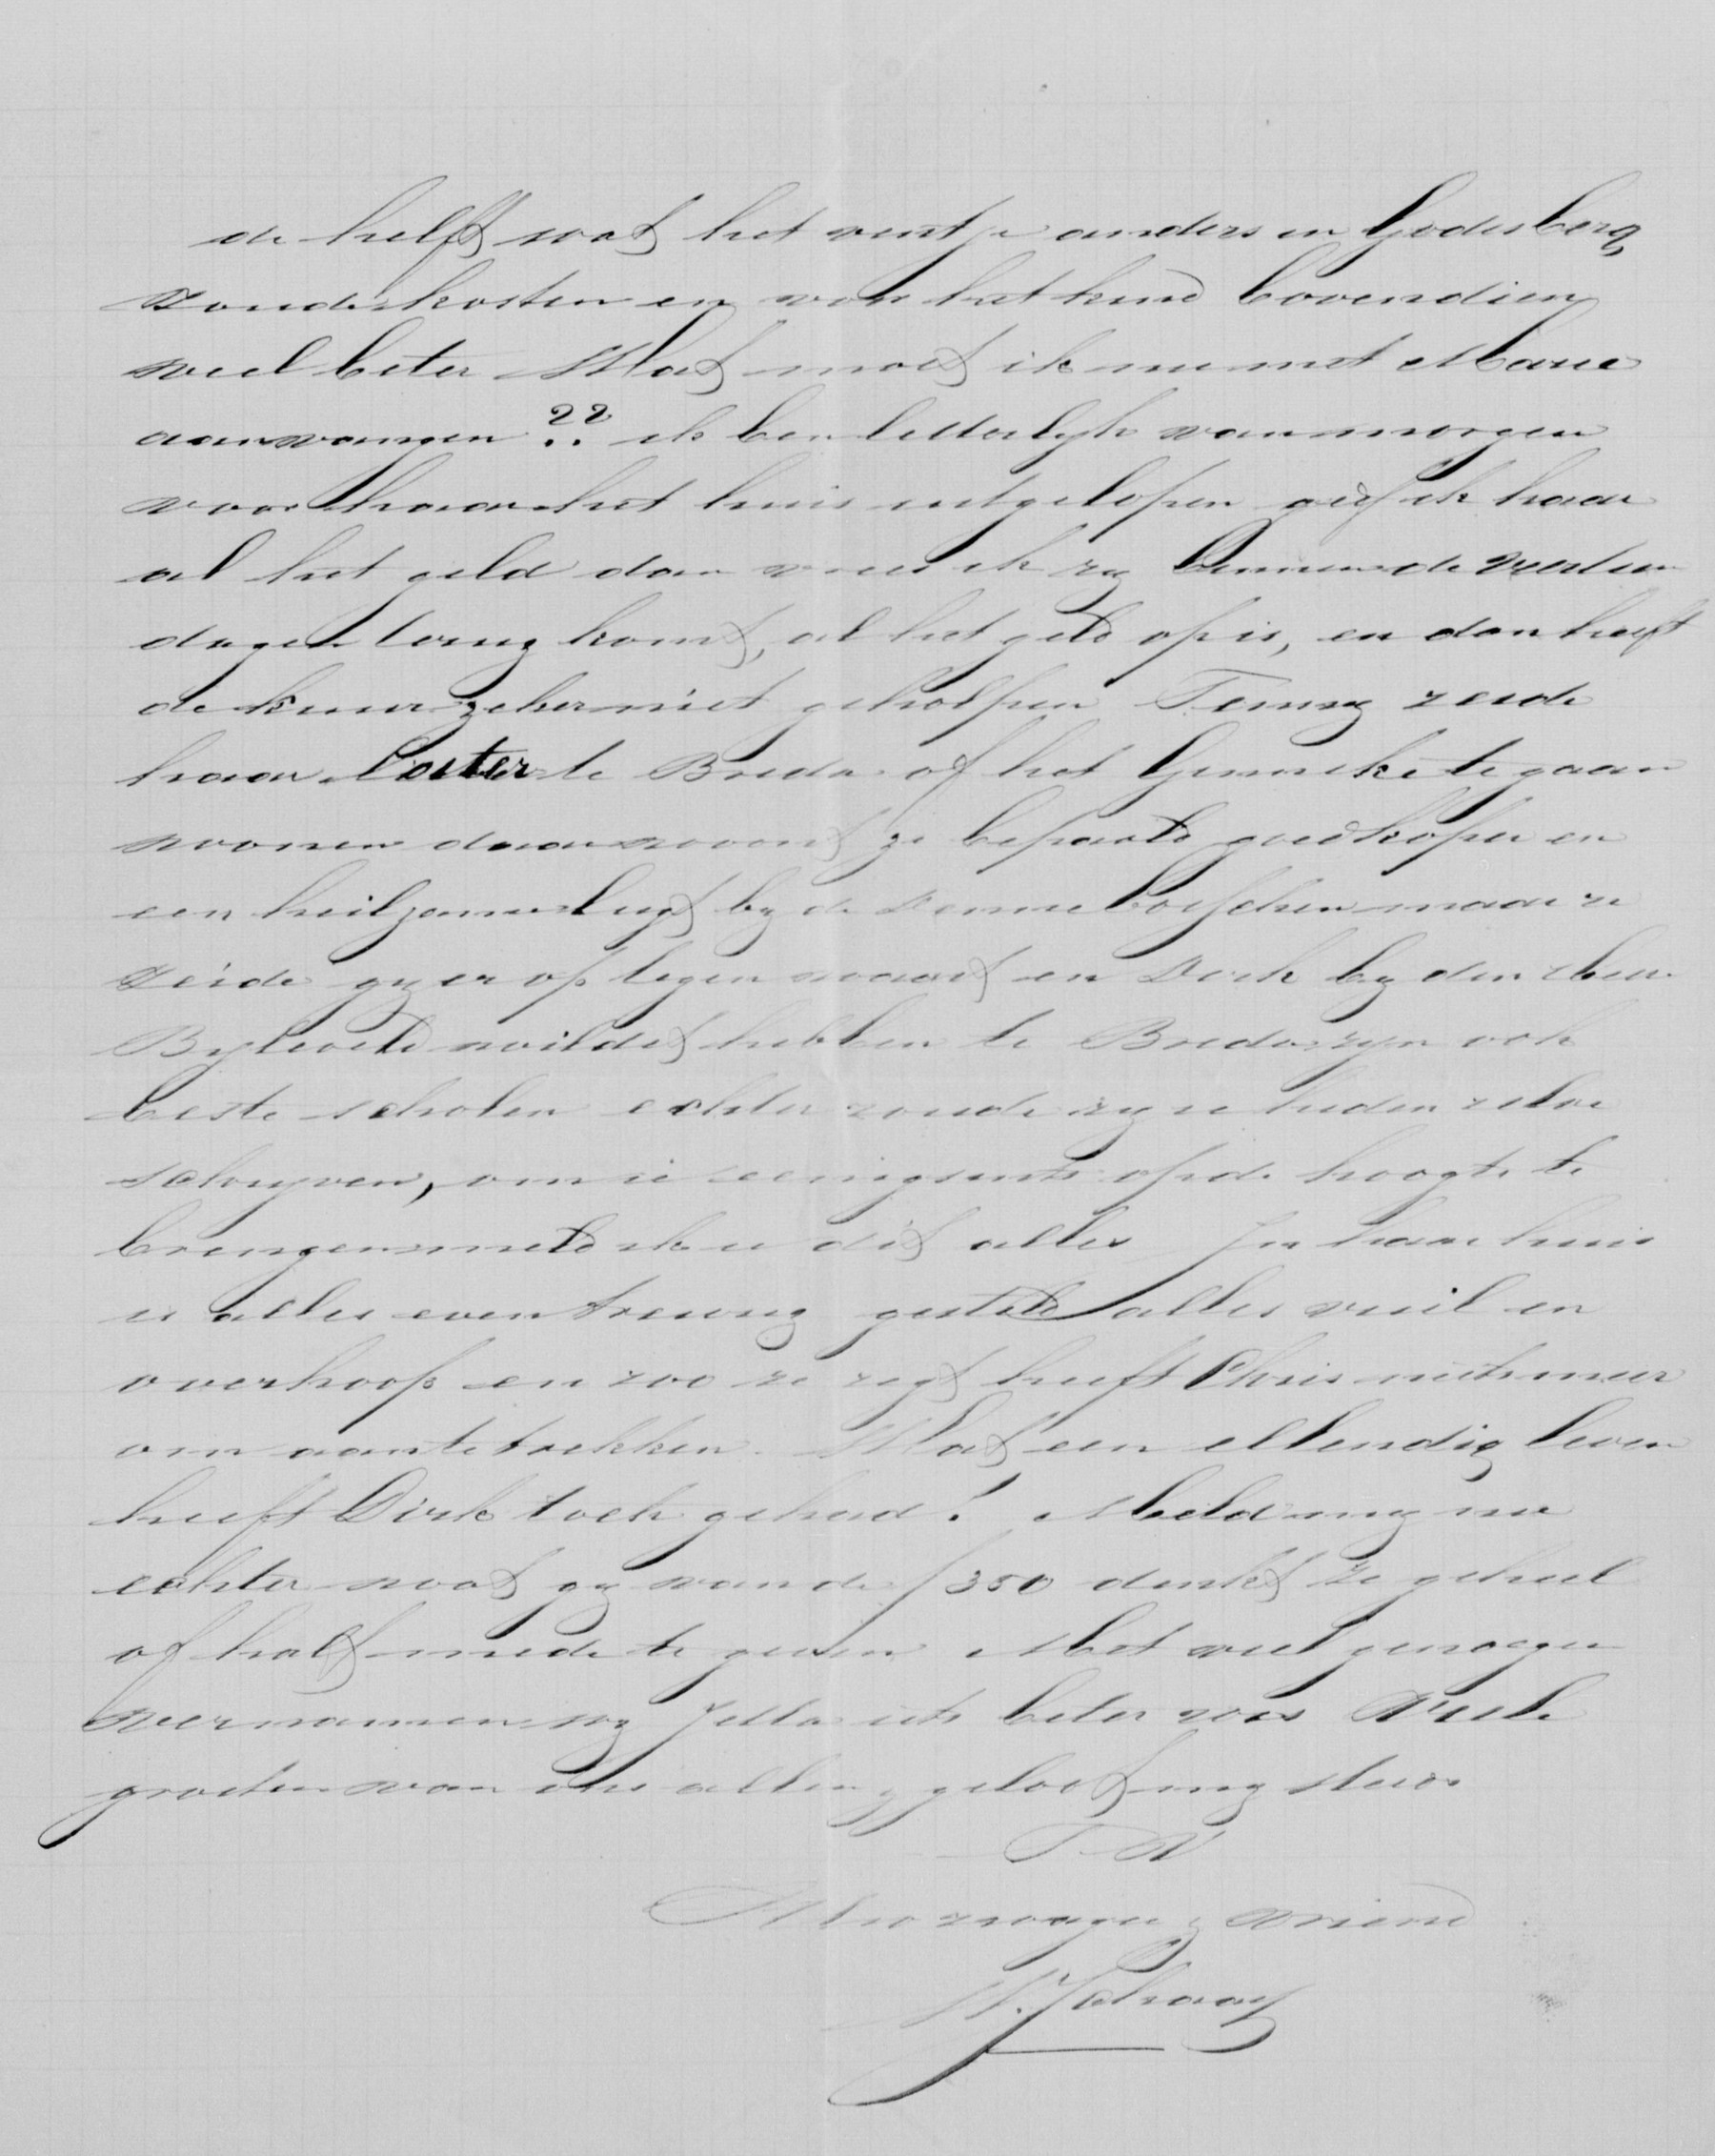 de helft wat het ventje anders in Godesberg
zoude kosten en voor het kind bovendien
veel beter Wat moet ik nu met Marie
aanvangen ?? ik ben letterlyk van morgen
voor haar het huis uitgelopen geef ik haar
al het geld dan vrees ik zy binnen de veertien
dagen terug komt, al het geld op is, en dan heeft
de kuur zeker niet geholpen Temmy zeide
haar liever te Breda of het Ginneke te gaan
wonen daar woont ze bepaald goedkoper en
een heilzame lugt by de Dennebosschen maar ze
zeide gy er op tegen waart en Dirk by den Heer
Byleveld wildet hebben te Breda zyn ook
beste scholen echter zoude zy u heden zelve
schryven, om u eenigsints op de hoogte te
brengen meld ik u dit alles In haar huis
is alles even treurig gesteld alles vuil en
overhoop en zoo ze zegt heeft Chris niets meer
om aan te trekken. Wat een ellendig leven
heeft Dirk toch gehad! Meld my nu
echter wat gy van de f 350 denkt ze geheel
of half mede te geven Met veel genoegen
vernamen wy Jetta iets beter was Veele
groeten van ons allen, geloof my steeds
T. V
Uw zwager & vriend